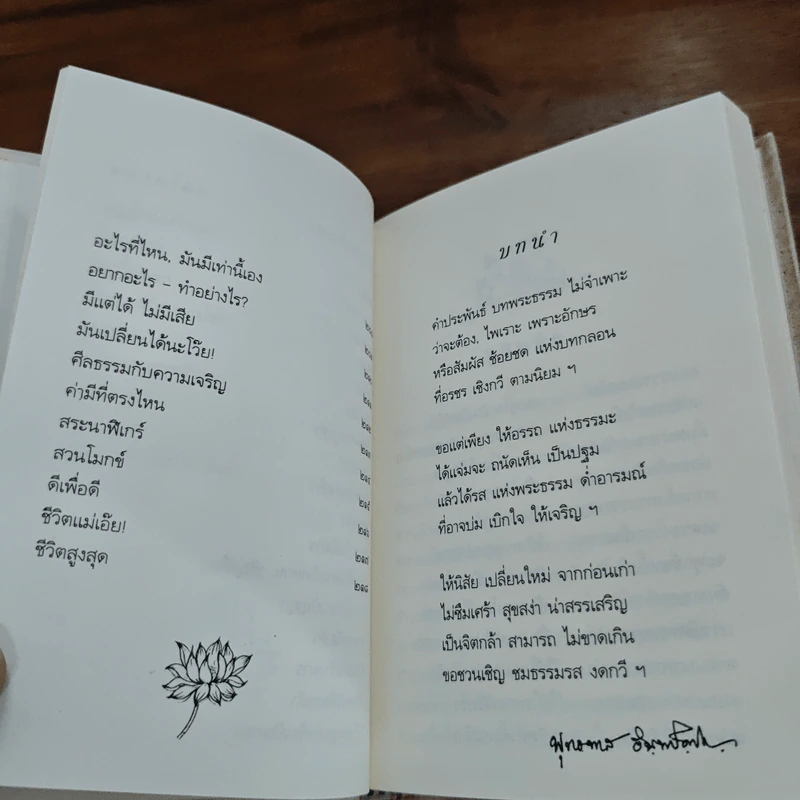 อะไรที่ไหน, มันมีเท่านี้เอง
อยากอะไร – ทำอย่างไร?
มีแต่ได้ ไม่มีเสีย
มันเปลี่ยนได้นะโว๊ย!
ศีลธรรมกับความเจริญ
ค่ามีที่ตรงไหน
สระนาฬิเกร์
สวนโมกข์
ดีเพื่อดี
ชีวิตแม่เอ๊ย!
ชีวิตสูงสุด
๒๑๕
๒๑๖
๒๑๗
๒๑๘
บทนำ
คำประพันธ์ บทพระธรรม ไม่จำเพาะ
ว่าจะต้อง, ไพเราะ เพราะอักษร
หรือสัมผัส ช้อยชด แห่งบทกลอน
ที่อรชร เชิงกวี ตามนิยม ฯ
ขอแต่เพียง ให้อรรถ แห่งธรรมะ
ได้แจ่มจะ ถนัดเห็น เป็นปฐม
แล้วได้รส แห่งพระธรรม ด่ำอารมณ์
ที่อาจบ่ม เบิกใจ ให้เจริญ ฯ
ให้นิสัย เปลี่ยนใหม่ จากก่อนเก่า
ไม่ซึมเศร้า สุขสง่า น่าสรรเสริญ
เป็นจิตกล้า สามารถ ไม่ขาดเกิน
ขอชวนเชิญ ชมธรรมรส งดกวี ฯ
พุทธทาส อินฺทปญฺโญ